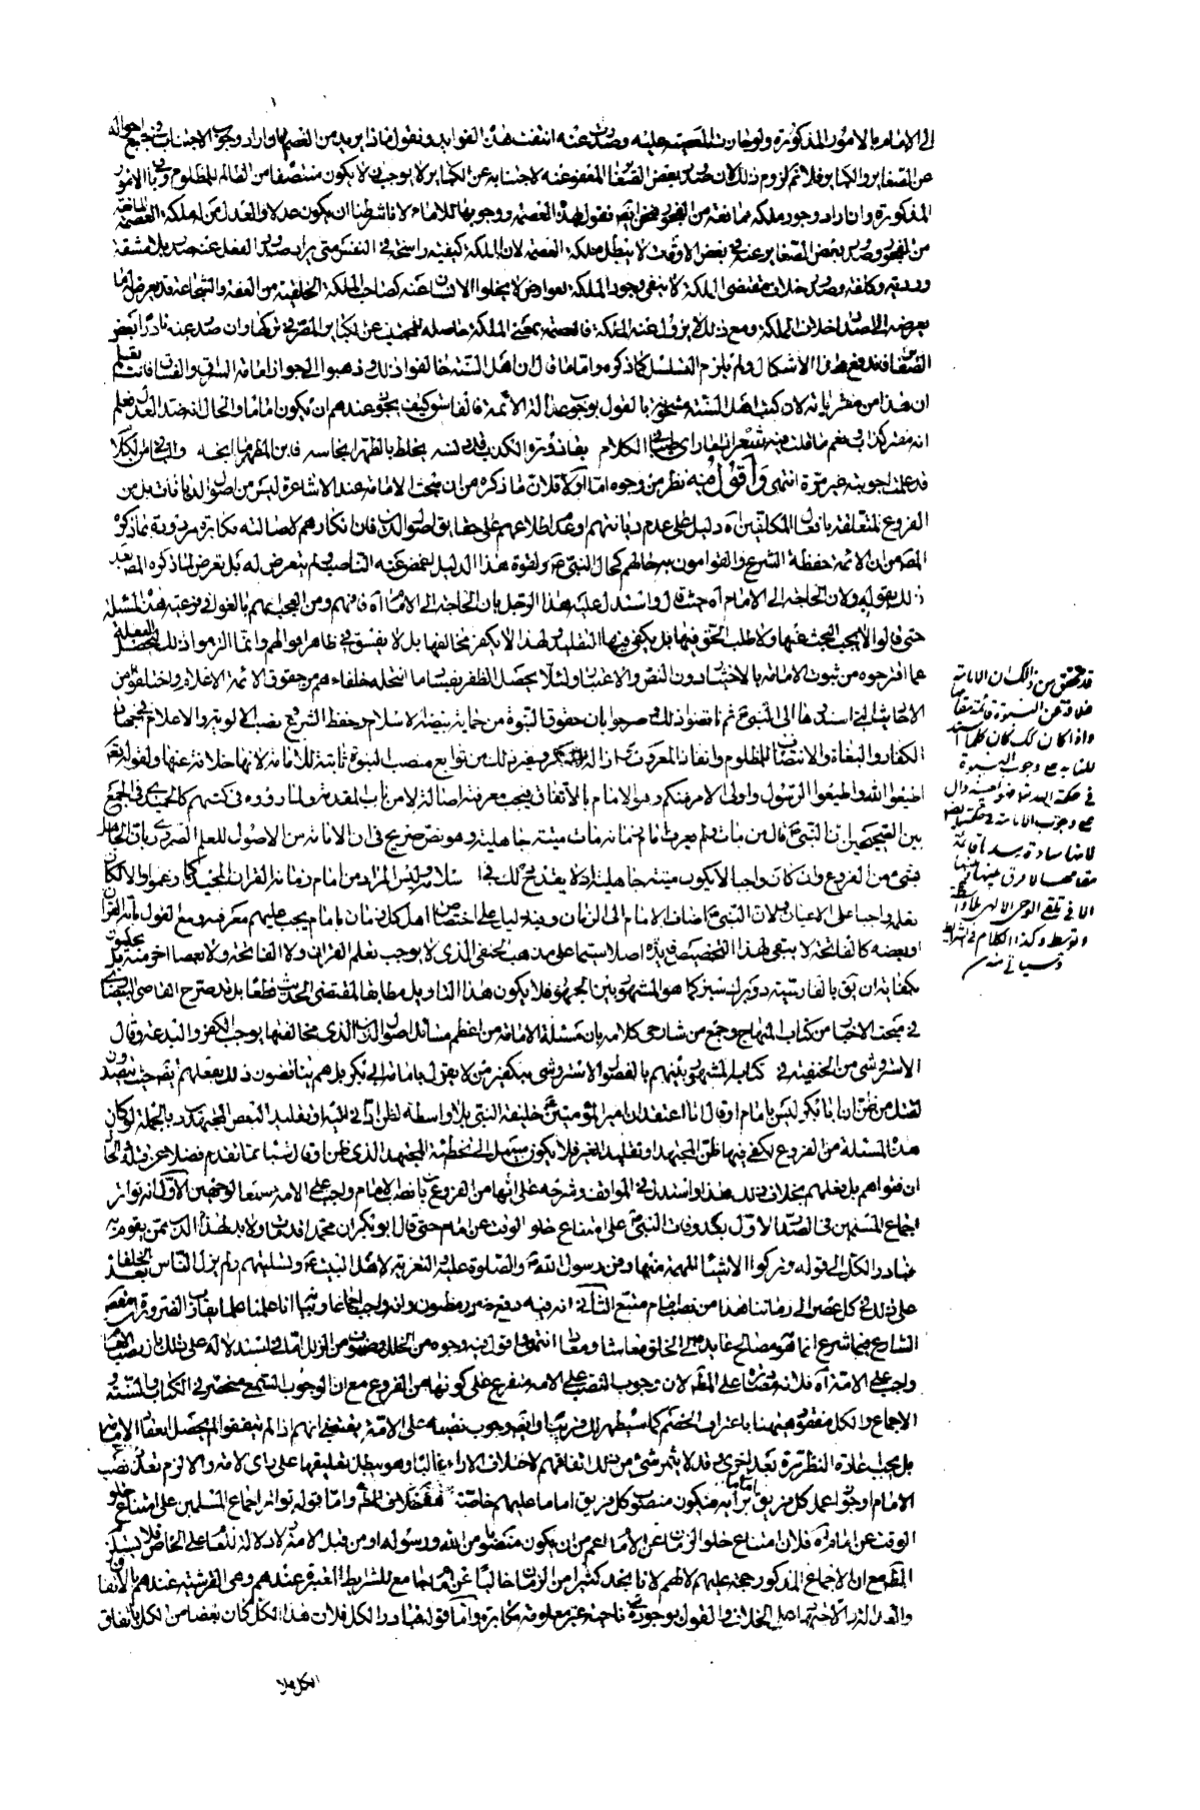 الى الامام بالامور المذكورة ولو جازت المعصية عليه وصدرت عنه انتفت هذه الفوايد ونقول ماذا يريد من العصمة ان اراد وجوب الاجتناب في جميع احواله
عن الصغاير والكباير فلا نم لزوم ذلك لان صدور بعض الصغاير المعفو عنه لاجتنابه عن الكباير لا يوجب ان لا يكون منتصفا من الظالم للمظلوم وفي باقي الامور
المذكورة وان اراد وجود ملكة مانعة من الفجور فنحن ايضا نقول بهذه العصمة ووجوبها للامام لانا شرطنا ان يكون عدلا والعدل من له ملكة العصمة المانعة
من الفجور وصدور بعض الصغاير عنه في بعض الاوقات لا يبطل ملكة العصمة لان الملكة كيفية راسخة في النفس متى يراد صدور الفعل عنه صدر بلا مشقة
وروية وكلفة وصدور خلاف مقتضى الملكة لا ينفي وجود الملكة لعوارض لا يخلوا الانسان عنه كصاحب الملكة الخلقية من العفة والشجاعة قد يعرض له ما
يعرضه الى اصدار خلاف الملكة ومع ذلك لا يزول عنه الملكة فالعصمة بمعنى الملكة حاصلة للمجتنب عن الكباير المصر في تركها وان صدر عنه نادرا بعض
الصغاير فاندفع هذا الاشكال ولم يلزم التسلسل كما ذكره واما ما قال ان اهل السنة خالفوا ذلك وذهبوا الى جواز امامة السارق والفساق فانت تعلم
ان هذا من مفترياته لان كتب اهل السنة مشحونة بالقول بوجوب عدالة الائمة فالفاسق كيف يجوز عندهم ان يكون اماما والحال انه ضد العدل فعلم
انه مفتر كذاب نعم ما قلت فيه شعر
قد علمت اجوبته غير مرة انتهى واقول فيه نظر من وجوه اما اولا فلان ما ذكره من ان مبحث الامامة عند الاشاعرة ليس من اصول الديانات بل من
الفروع المتعلقة بافعال المكلفين اه دليل على عدم ديانتهم وعدم اطلاعهم على حقايق اصول الدين فان انكارهم لاصالته مكابرة مردودة بما ذكره
المص من ان الائمة حفظة الشرع والقوامون به حالهم كحال النبي ص ولقوة هذا الدليل اغمض عنه الناصب لم يتعرض له بل تعرض لما ذكره المص بعيد
ذلك بقوله ولان الحاجة الى الامام اه حيث قال واستدل عليه هذا الرجل بان الحاجة الى الامام اه فافهم ومن العجب انهم بالغوا في فرعية هذه المسئلة
حتى قالوا لا يجب البحث عنها ولا طلب الحق فيها بل يكفي فيها التقليد ولهذا لا يكفر مخالفها بل لا يفسق في ظاهر اقوالهم وانما الزموا ذلك
عما اقترحوه من ثبوت الامامة بالاختيار دون النص والاعتبار ولئلا يحصل الظفر بفساد ما انتحله خلفاءهم من حقوق الائمة الاعلام واختلقوه من
الاحاديث التي اسندوها الى النبي ع ثم ناقضوا ذلك وصرحوا بان حقوق النبوة من حماية بيضة الاسلام وحفظ الشرع ونصب الالوية والاعلام في جهاد
الكفار والبغاة والانتصاف للمظلوم وانفاذ المعروف وازالة المنكر وغير ذلك من توابع منصب النبوة ثابتة للامامة لانها خلافة عنها ولقوله تع
اطيعوا الله واطيعوا الرسول واولى الامر منكم وهو الامام بالاتفاق فيجب معرفته اصالة لا من باب المقدمة ولما رووه في كتبهم كالحميدى في الجمع
بين الصحيحين ان النبي ع قال من مات ولم يعرف امام زمانه مات ميتة جاهلية وهو نص صريح في ان الامامة من الاصول للعلم الضروري بان الجاهل
بشئ من الفروع وان كان واجبا لا يكون ميتته جاهلية اذ لا يقدح ذلك في اسلامه وليس المراد من امام زمانه القران المجيد كما زعموا والا لكان
تعلمه واجبا على الاعيان ولان النبي ع اضاف الامام الى الزمان وفيه دليل على اختصاص اهل كل زمان بامام يجب عليهم معرفته ومع القول بانه القران
او بعضه كالفاتحة لا يبقى لهذا التخصيص فايدة اصلا سيما على مذهب الحنفي الذي لا يوجب تعلم القران ولا الفاتحة ولا بعضا اخر منه بل
يكفي انه يق بالفارسية دو برگ سبز كما هو المشهور بين الجمهور فلا يكون هذا التاويل مطابقا لمقتضى الحديث قطعا بل قد صرح القاضي البيضاوي
في مبحث الاخبار من كتاب المنهاج وجمع من شارحي كلامه بان مسئلة الامامة من اعظم مسائل اصول الدين الذي مخالفتها يوجب الكفر والبدعة وقال
الاستروشي من الحنفية في كتابه المشهور بينهم بالفصول الاستروشي بتكفير من لا يقول بامامة ابي بكر بل هم يناقضون ذلك بفعلهم ايضا حيث يتصدون
لقتل من ظن ان ابا بكر ليس بامام او قال انا اعتقد ان امير المؤمنين ع خليفة النبي بلا واسطة لظن ادى اليه او تقليد لبعض المجتهدين وبالجملة لو كان
هذه المسئلة من الفروع لكفى فيها ظن المجتهد او تقليد الغير فلا يكون سبيل الى تخطئة المجتهد الذي ظن او قال شيئا مما تقدم فضلا عن قتله والحال
ان فتواهم بل فعلهم بخلاف ذلك هذا واستدل في المواقف وشرحه على انها من الفروع بان نصب الامام واجب على الامة سمعا لوجهين الاول انه تواتر
اجماع المسلمين في الصدر الاول بعد وفات النبي ع على امتناع خلو الوقت عن امام حتى قال ابو بكر ان محمدا قد مات ولا بد لهذا الدين ممن يقوم به
فبادر الكل الى قوله وتركوا الاشياء المهمة منها دفن رسول الله ص والصلوة عليه والتعزية لاهل البيت ع وتسليتهم ولم يزل الناس بعد الخلفاء
على ذلك في كل عصر الى زماننا هذا من نصب امام متبع الثاني انه فيه دفع ضرر مظنون وانه واجب اجماعا وبيانه انا علمنا علما يقارب الضرورة ان مقصود
الشارع فيما شرع انما هو مصالح عايدة الى الخلق معاشا ومعادا انتهى واقول فيه وجوه من الخلل وصنوف من الزلل اما في استدلاله على ذلك بان نصب الامام
واجب على الامة اه فلانه مصادرة على المط لان وجوب النصب على الامة متفرع على كونها من الفروع مع ان الوجوب السمعي منحصر في الكتاب والسنة و
الاجماع والكل مفقود ههنا باعتراف الخصم كما سيظهر لك قريبا وايضا وجوب نصبه على الامة يفضي الى انهم اذا لم يتفقوا لم يحصل انعقاد الامامة
بل يجب اعادة النظر مرة بعد اخرى وقد لا يثمر شئ من ذلك اتفاقهم لاختلاف الاراء غالبا وهو يبطل تعليقها على راى الامة والا لزم تعذر نصب
الامام او جواز عمل كل فريق برايه فيكون منصوب كل فريق اماما عليهم خاصة هف خلاف المط واما قوله تواتر اجماع المسلمين على امتناع خلو
الوقت عن امام اه فلان امتناع خلو الزمان عن الامام اعم من ان يكون منصوبا من الله ورسوله او من قبل الامة ولا دلالة للعام على الخاص فلا يستلزم
المط مع ان الاجماع المذكور حجة عليهم لا لهم لانا نجد كثيرا من الزمان خاليا عن امام جامع للشرايط المعتبرة عندهم وهي القرشية عندهم بالاتفاق
والقول بوجوده في ناحية غير معلومة مكابرة واما قوله فبادر الكل فلان هذا الكل كان بعضا من الكل باتفاق
الكل فلا
قد تحقق من ذلك ان الامامة
خلافة عن النبوة قائمة مقامها
واذا كان كذلك كان كلما استدل
للنا به على وجوب النبوة
في حكمة الله تعالى فهو بعينه دال
على وجوب الامامة في حكمته ايضا
لانها سادة مسدها قائمة
مقامها لا فرق بينها وبينها
الا في تلقي الوحي الالهي بلا واسطة
وتوسط وكذا الكلام في الشرايط
وسياتي منه